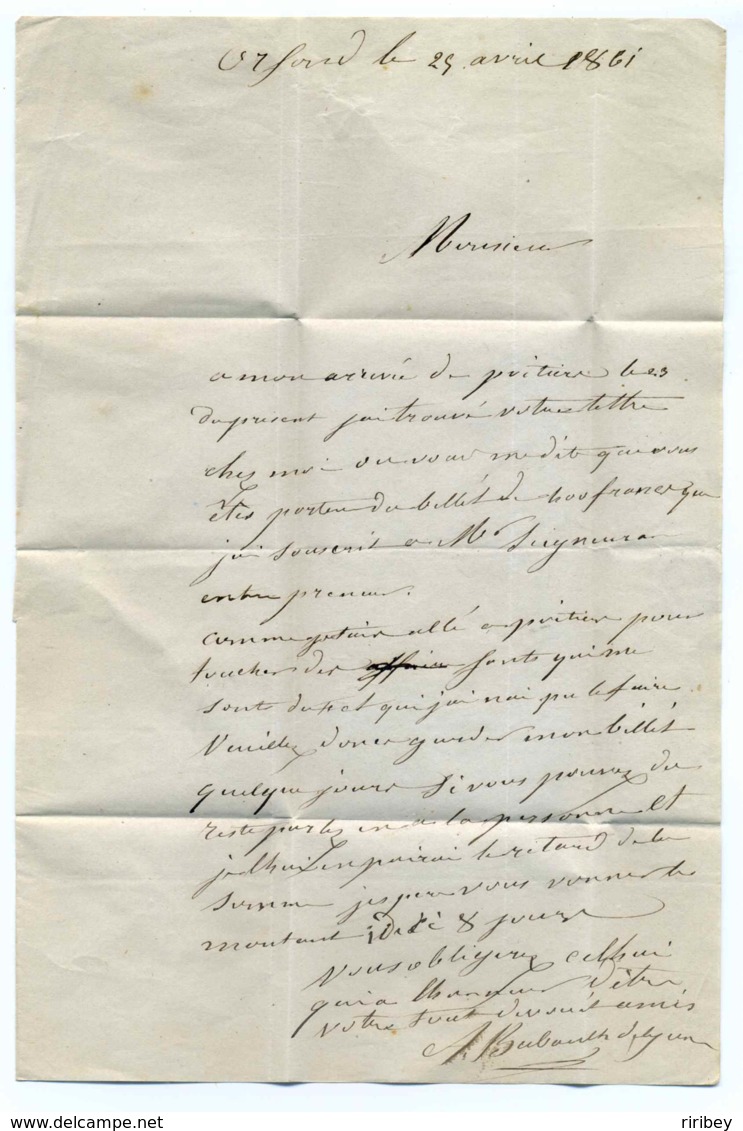 le 25 avril 1861
Monsieur
a mon arrivé de poitiers le 23
du present jai trouvé votre lettre
ches moi ou vous me dite que vous
êtes porteur du billet de francs que
jai souscrit a Mr Seigneurea
entre preneur.
comme jetais allé a poitiers pour
toucher des fonts qui me
sont dus et qui jai nai pu le faire.
Veuillez donc garder mon billet
quelque jours Si vous pouvez du
reste parlez en a la personne Et
je lhui en pairai le retard de la
somme jespere vous donner le
montant dici 8 jours
Vous obligerez celhui
qui a lhonneur d'être
votre tout devoué amis
A Babault
riribey